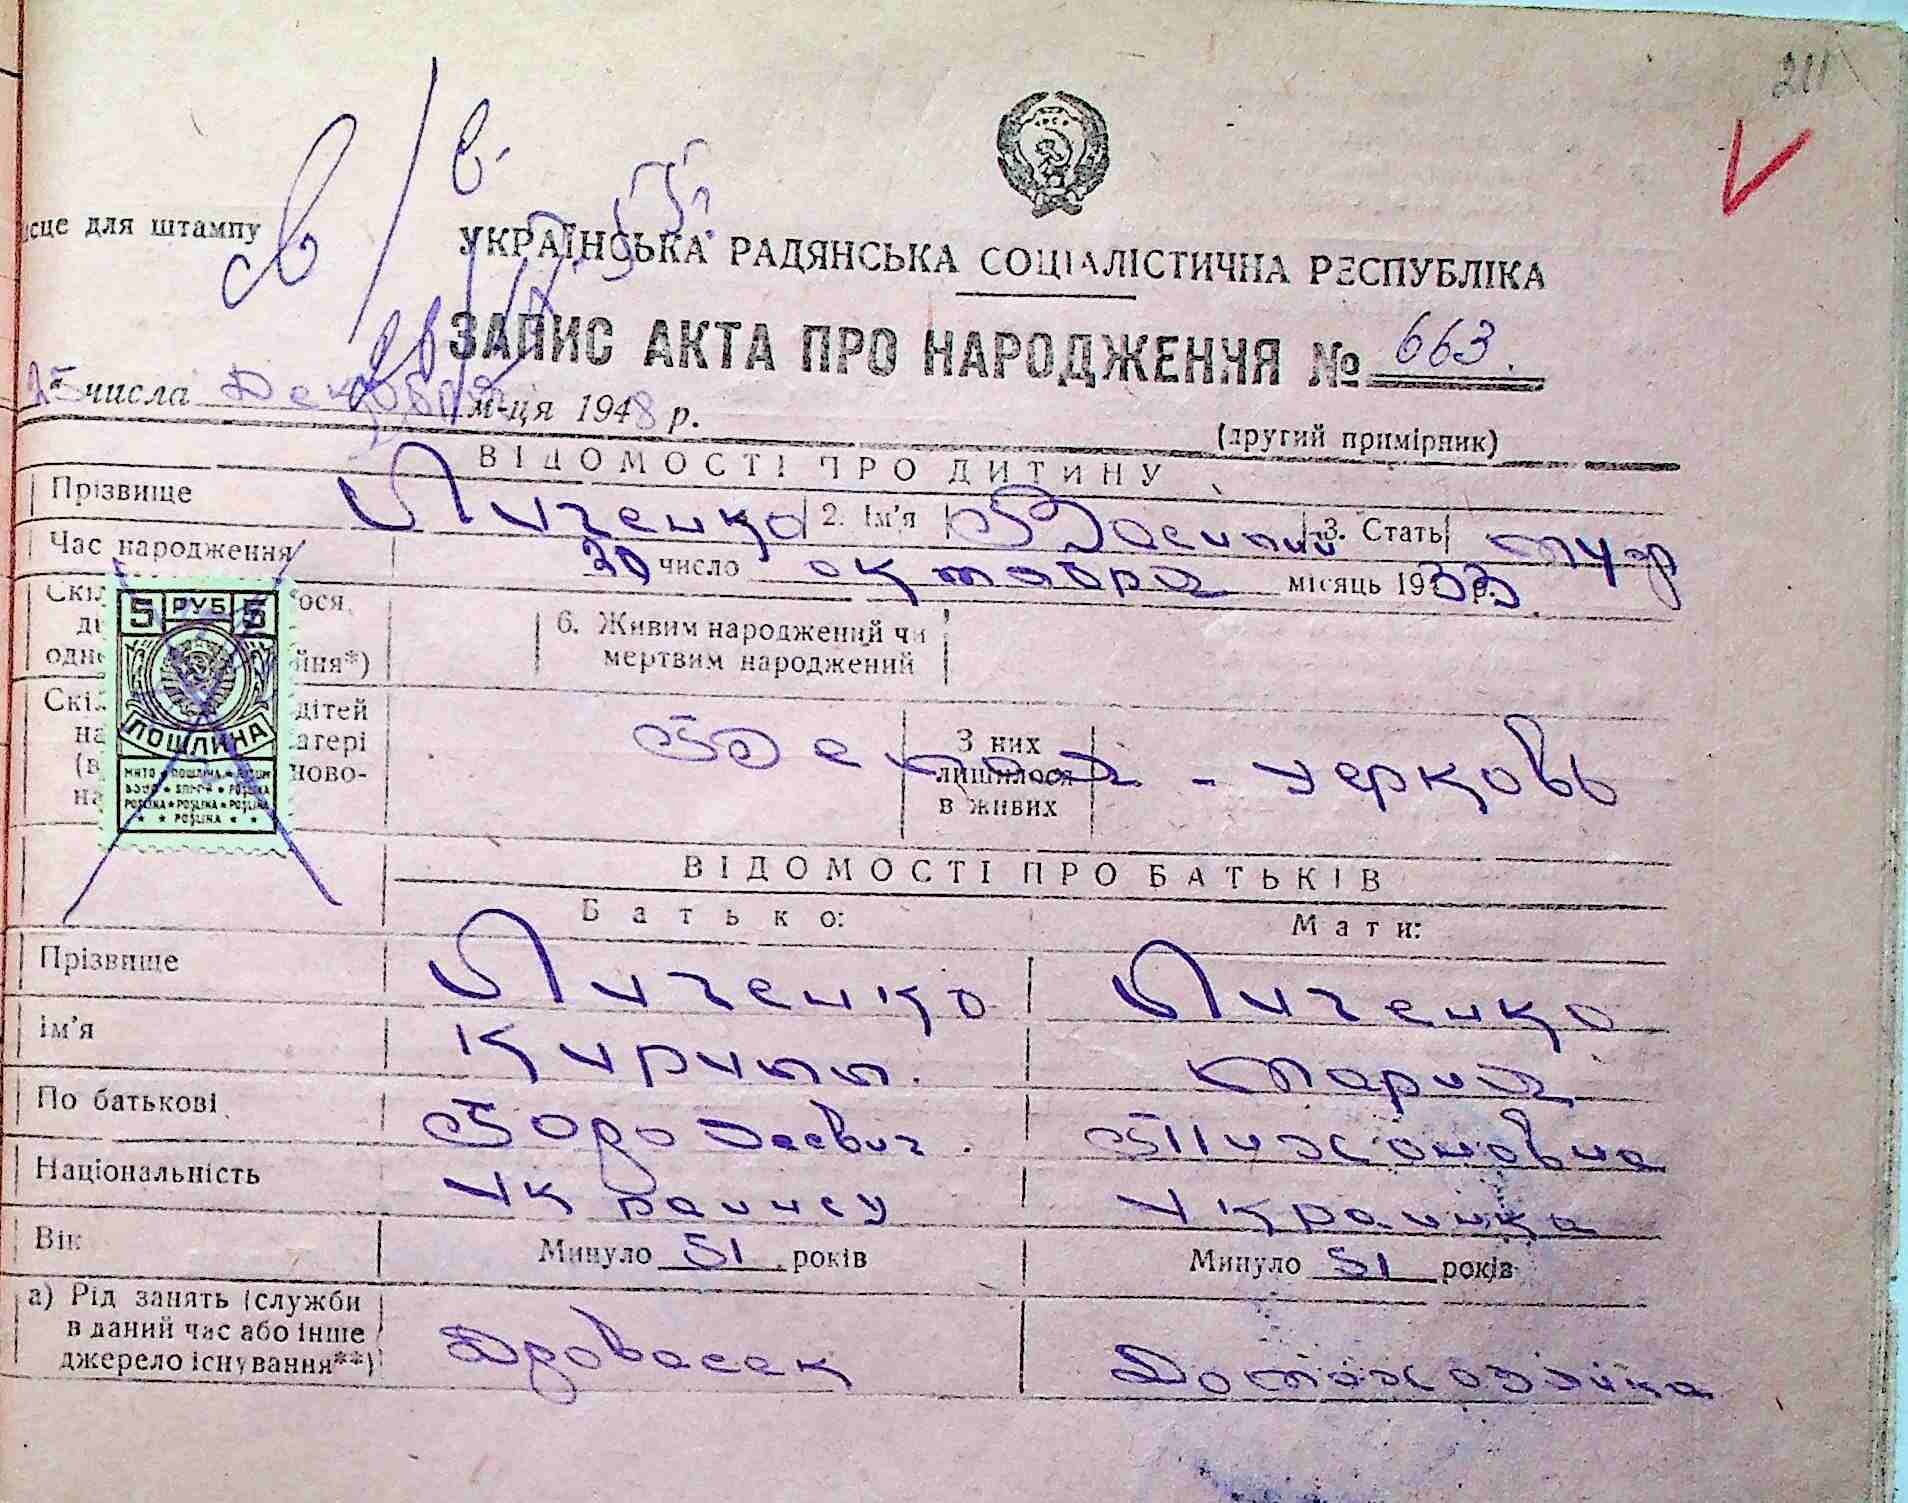 211
в/в
ісце для штампу
УКРАЇНСЬКА РАДЯНСЬКА СОЦІАЛІСТИЧНА РЕСПУБЛІКА
ЗАПИС АКТА ПРО НАРОДЖЕННЯ № 663.
25 числа Декабря м-ця 1948 р.
(другий примірник)
ВІДОМОСТІ ПРО ДИТИНУ
Прізвище Личенко 2. Ім'я Василий 3. Стать муж
Час народження 30 число октября місяць 1933 р.
Скіл ося
ді
одн йня*)
6. Живим народжений чи
мертвим народжений
Скіл дітей
на атері
(в ново-
на
З них
лишилося
в живих
Белая - церковь
5 РУБ 5
ПОШЛИНА
ВІДОМОСТІ ПРО БАТЬКІВ
Батько: Мати:
Прізвище Личенко Личенко
Ім'я Кирилл. Мария
По батькові Тихоновна
Національність Украинец Украинка
Вік Минуло 51 років Минуло 51 років
а) Рід занять (служби
в даний час або інше
джерело існування**)
Дровосек Домохозяйка